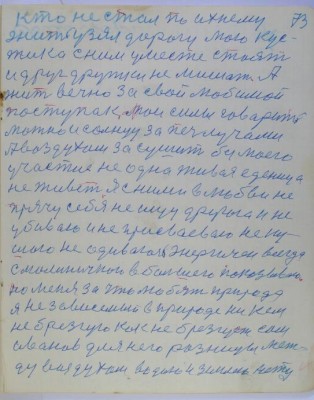 Кто не стал по ихнему 73
жить взял дорогу мою Кус-
жика с ним уместе стоят
и друг дружки не мишат. А
жит вечно за свой любимой
поступак. Мои силы говарит
можно и солнцу за печ лучами
А воздухам засушит бы моего
участие не одна живая еденица
не живет Я с ними в любви не
прячу себя не ищу другога и не
убиваю и не присваеваю не
шого не одиваюся Энергичен всегда
с маличкого в большего показываю
по меня за что любят природа
я не зависемыь в природе ни кем
не брезгую как не брезгует сам
Иванов для него разницы меж-
ду воздухам водою и землею нету